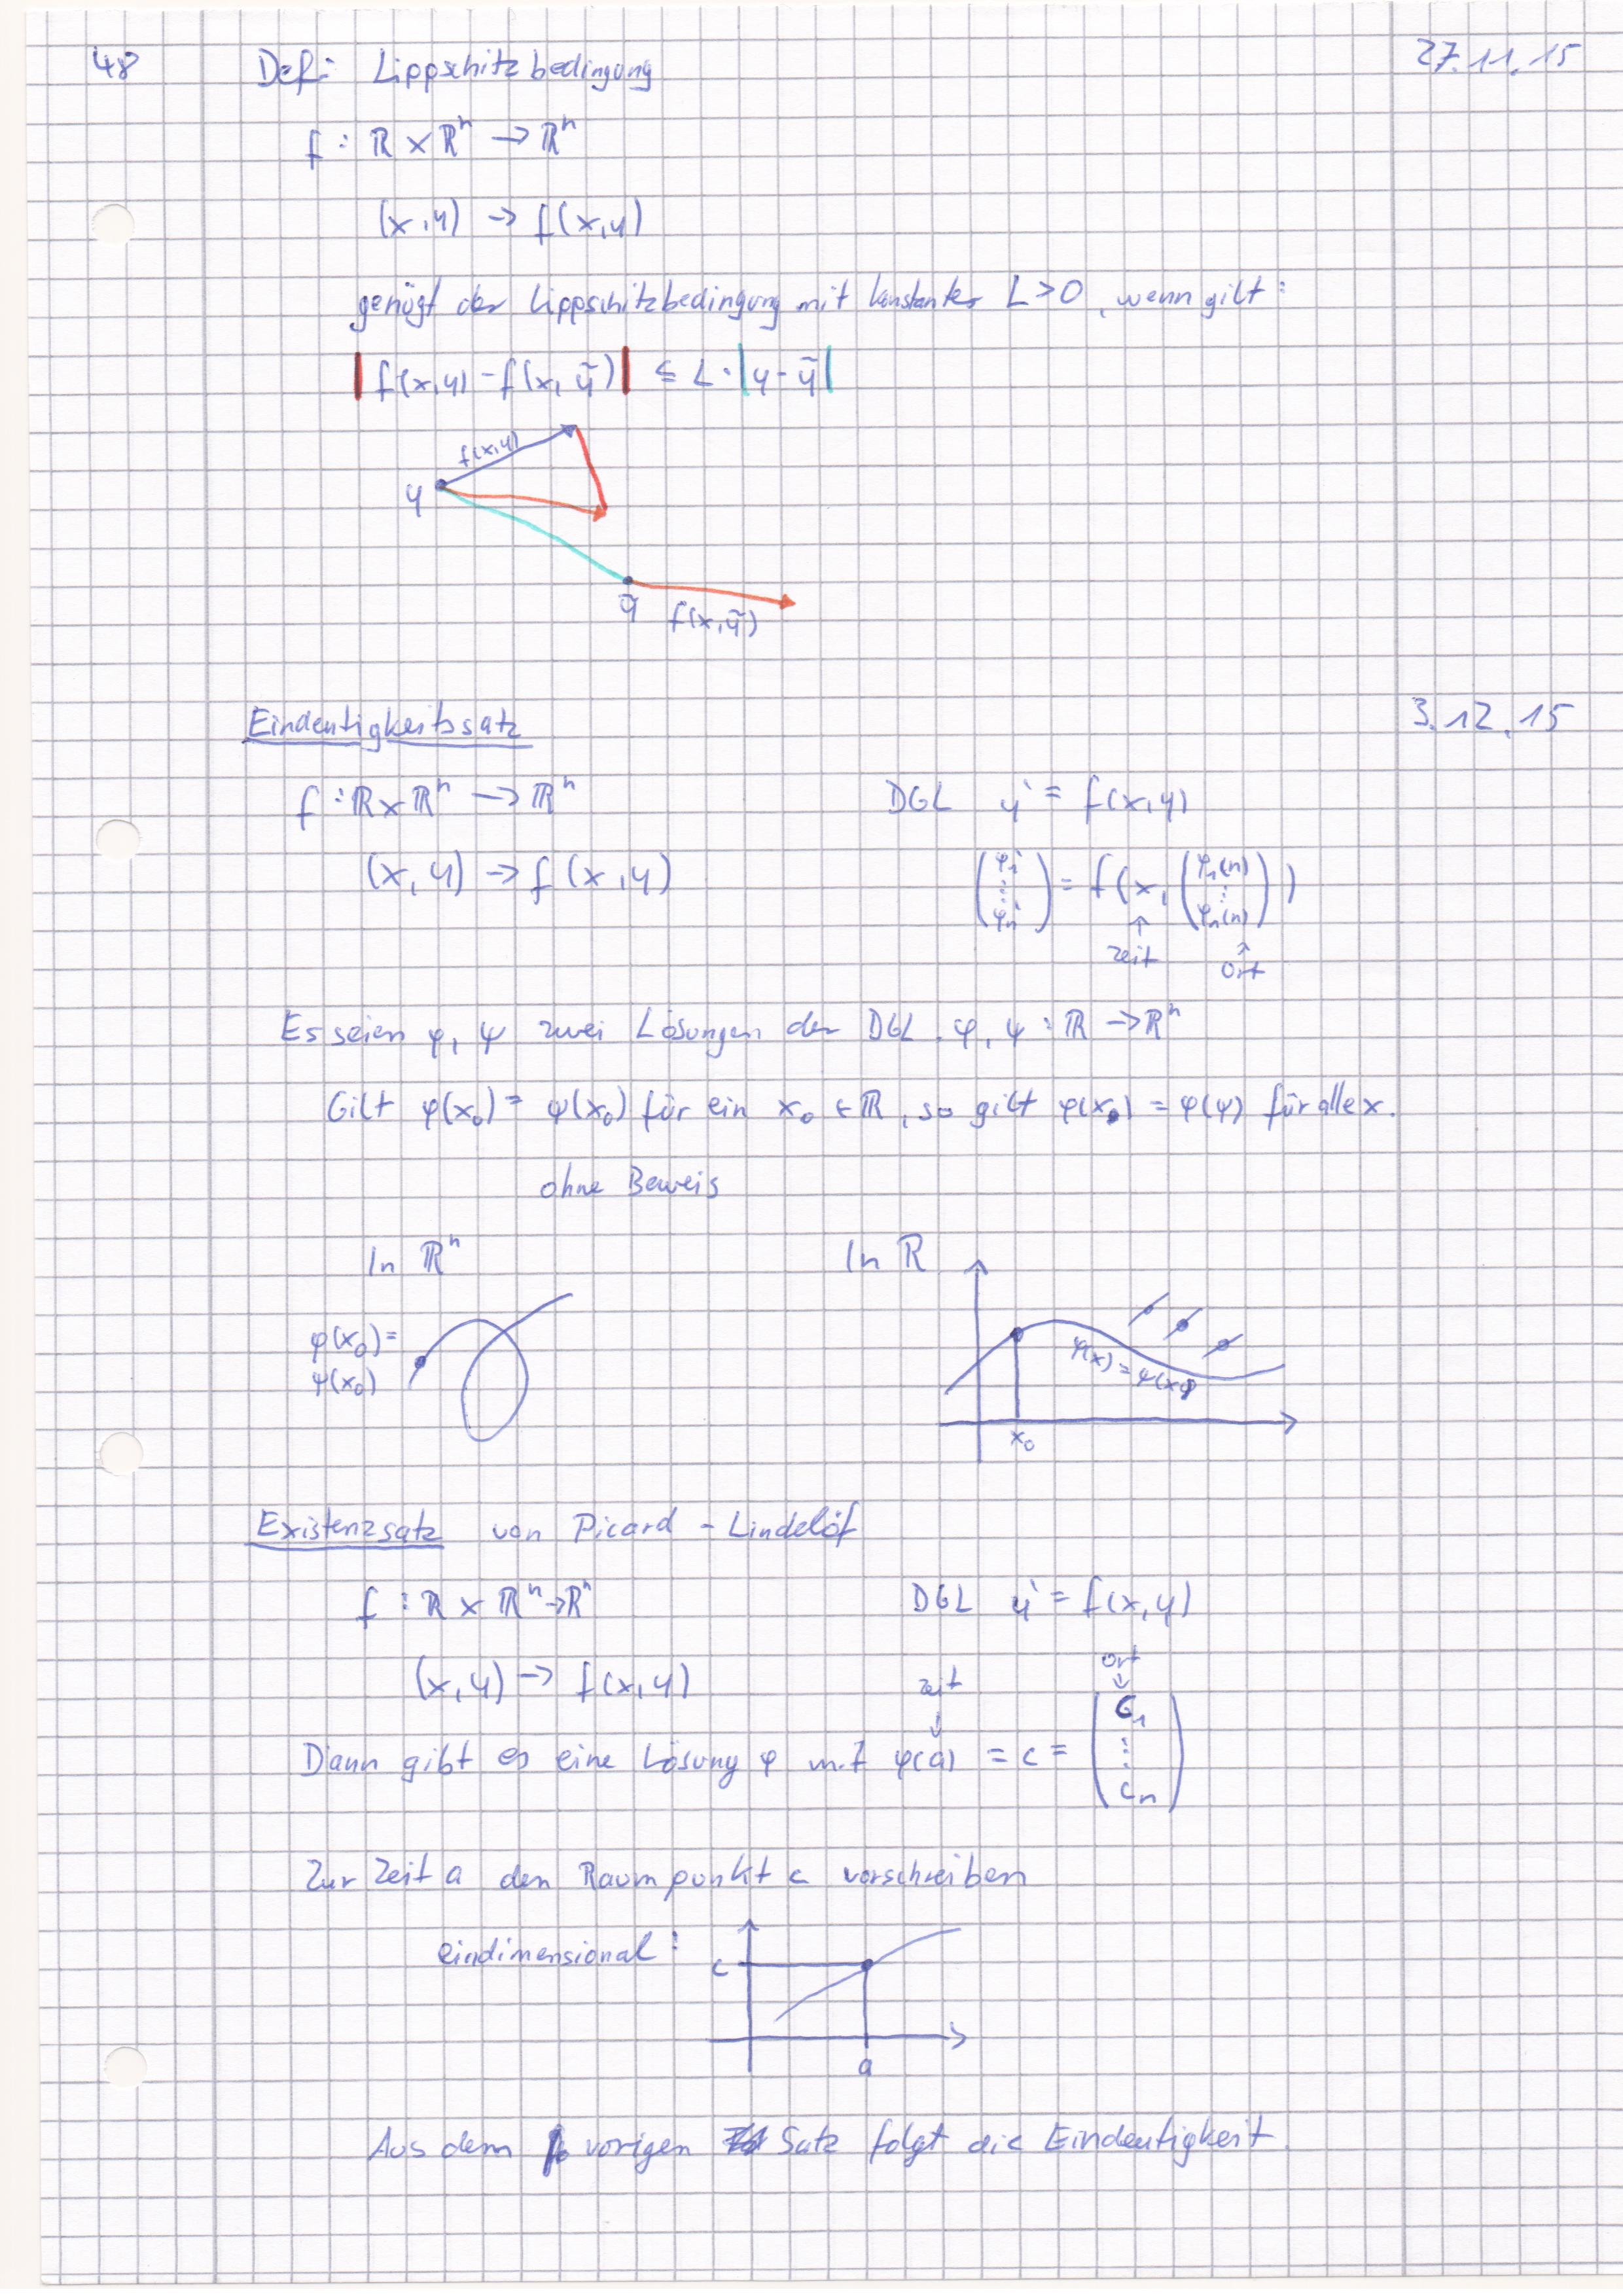 48 Def: Lippschitzbedingung 27.11.15
f : ℝ × ℝⁿ → ℝⁿ
(x,y) → f(x,y)
genügt der Lippschitzbedingung mit Konstanter L>0, wenn gilt:
|f(x,y) - f(x,ỹ)| ≤ L·|y-ỹ|
f(x,y)
y
ỹ f(x,ỹ)
Eindeutigkeitssatz 3.12.15
f : ℝ × ℝⁿ → ℝⁿ DGL y' = f(x,y)
(x,y) → f(x,y) (φ₁' ⋮ φₙ') = f(x, (φ₁(n) ⋮ φₙ(n)))
↑ ↑
Zeit Ort
Es seien φ, ψ zwei Lösungen der DGL. φ, ψ : ℝ → ℝⁿ
Gilt φ(x₀) = ψ(x₀) für ein x₀ ∈ ℝ, so gilt φ(x₀) = φ(ψ) für alle x.
ohne Beweis
In ℝⁿ In ℝ
φ(x₀)=
ψ(x₀)
φ(x) = ψ(x)
x₀
Existenzsatz von Picard - Lindelöf
f : ℝ × ℝⁿ → ℝⁿ DGL y' = f(x,y)
Ort
(x,y) → f(x,y) Zeit ↓
↓
Dann gibt es eine Lösung φ mit φ(a) = c = (c₁ ⋮ cₙ)
Zur Zeit a den Raumpunkt c vorschreiben
eindimensional: c
a
Aus dem vorigen Satz folgt die Eindeutigkeit.